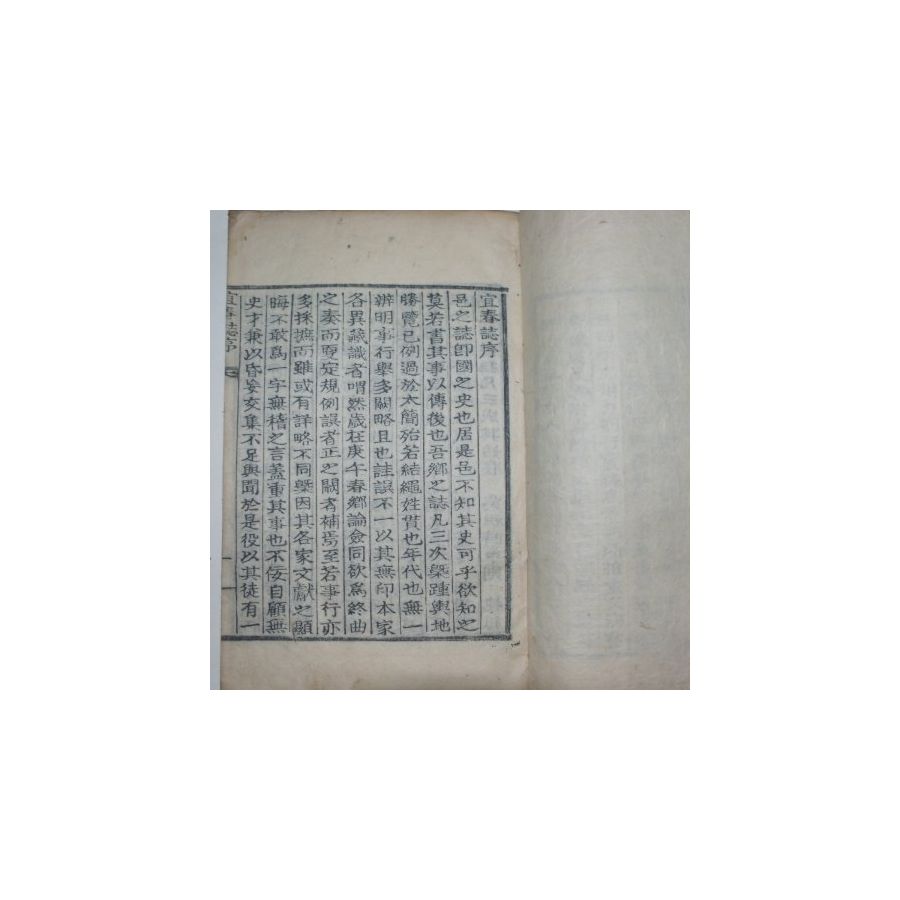 宜春誌序
邑之誌卽國之史也居是邑不知其史可乎欲知之
莫若書其事以傳後也吾鄉之誌凡三次槩踵輿地
勝覽已例過於太簡殆若結繩姓貫也年代也無一
辨明事行舉多闕略且也註誤不一以其無印本家
各異藏識者喟然歲在庚午春鄉論僉同欲爲終曲
之奏而更定規例誤者正之闕者補焉至若事行亦
多採摭而雖或有詳略不同槩因其各家文獻之顯
晦不敢爲一字無稽之言蓋重其事也不佞自顧無
史才兼以昏妄交集不足與聞於是役以其徒有一
宜春誌序